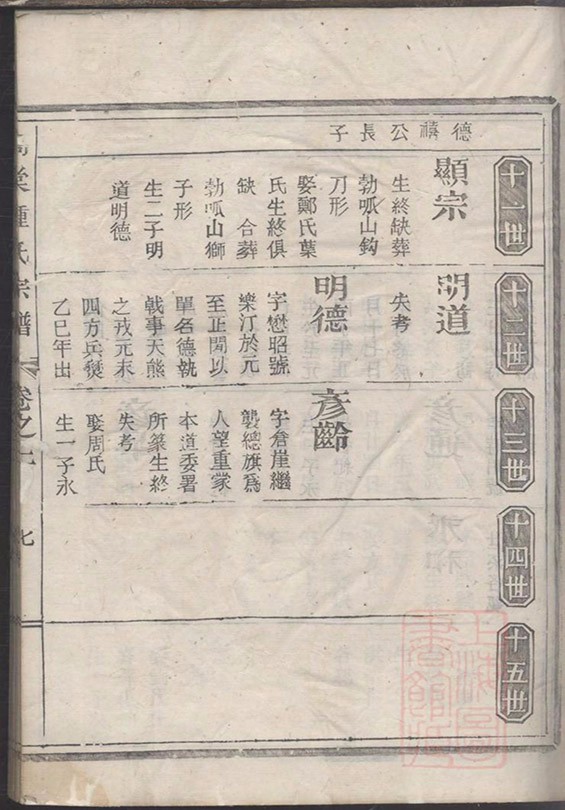 德禧公長子
十一世
顯宗
生終缺葬
勃呱山鈎
刀形
娶鄭氏葉
氏生終俱
缺 合葬
勃呱山獅
子形
生二子明
道明德
十二世
明道
失考
明德
字懋昭號
樂汀於元
至正間以
單名德執
戟事天熊
之戎元末
四方兵燹
乙巳年出
十三世
彥齡
字倉崖繼
襲總旗爲
人望重蒙
本道委署
所篆生終
失考
娶周氏
生一子永
十四世
十五世
棠鍾氏宗譜
卷之一
七
上海圖書館藏